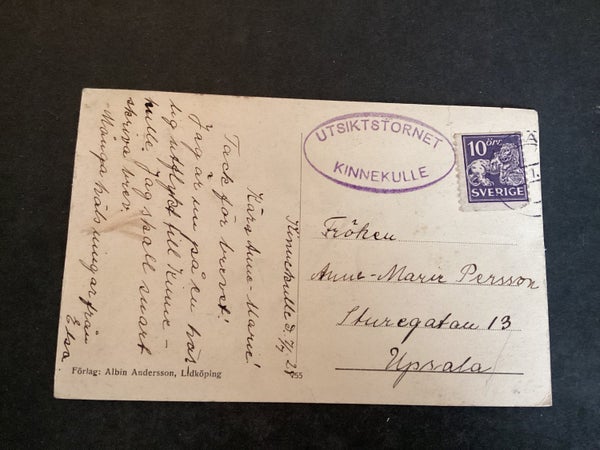 Kinnekulle d. 7/7 28
Kära Anne-Marie!
Tack för brevet!
Jag är nu på en här-
lig utflygt till Kinne-
kulle. Jag skall snart
skriva brev.
Många hälsningar från
Elsa
UTSIKTSTORNET
KINNEKULLE
10 öre
SVERIGE
Fröken
Anne-Marie Persson
Sturegatan 13
Upsala
Förlag: Albin Andersson, Lidköping